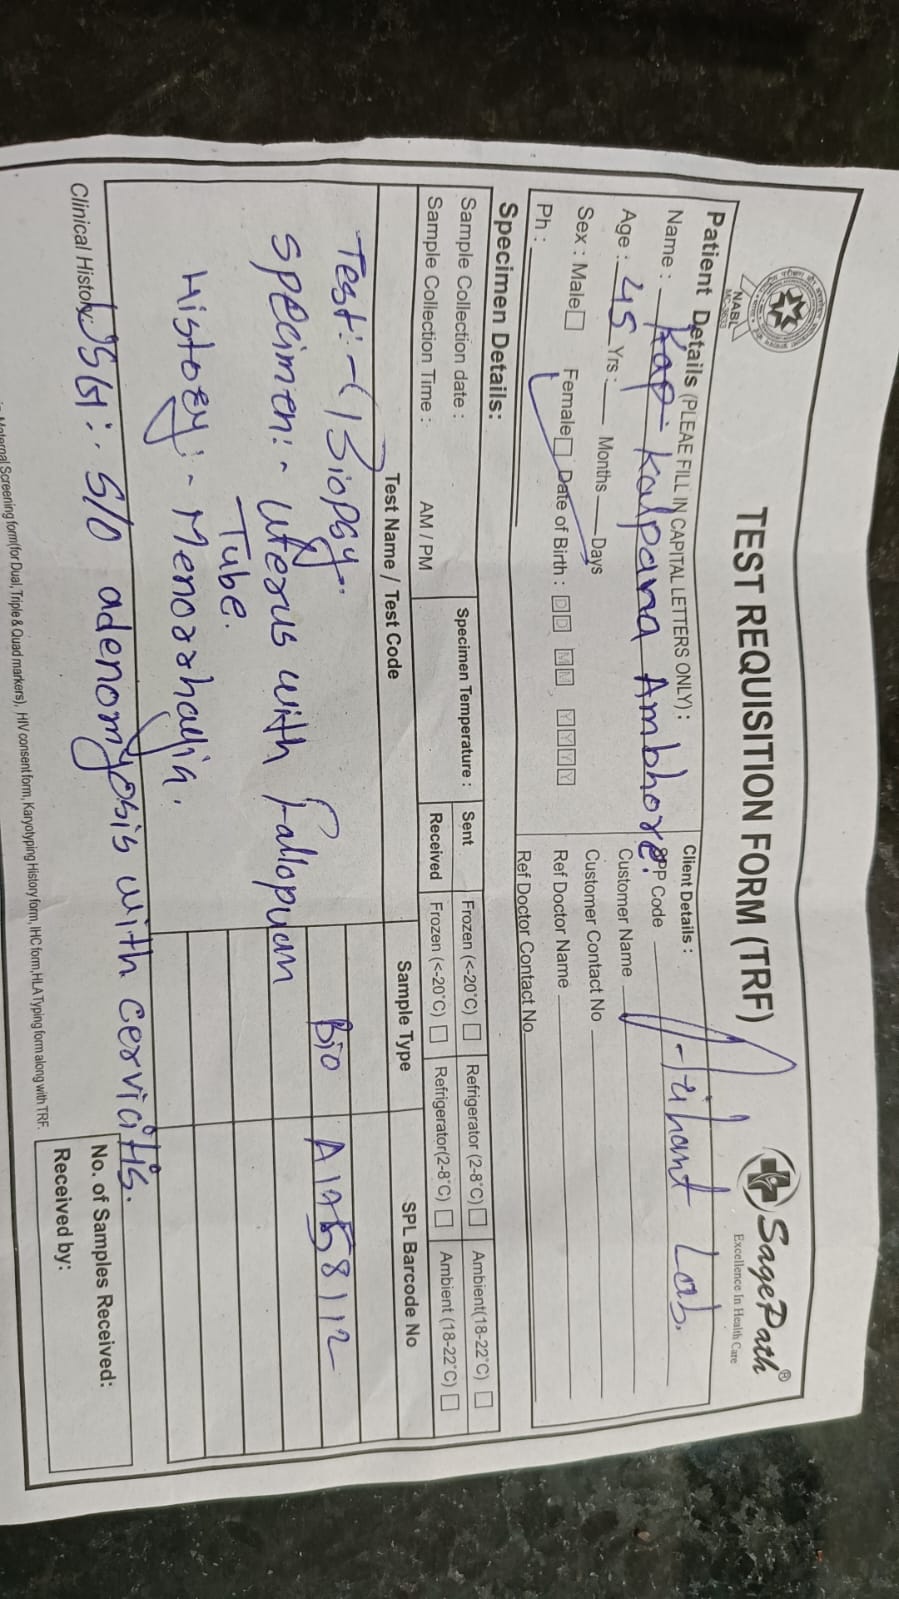 NABL
MC-3633
TEST REQUISITION FORM (TRF)
SagePath®
Excellence In Health Care
Patient Details (PLEAE FILL IN CAPITAL LETTERS ONLY) :
Name : Kalpana Ambhore.
Age : 45 Yrs : Months Days
Sex : Male Female Date of Birth : DD MM YYYY
Ph :
Client Details :
SPP Code
Customer Name
Lab.
Customer Contact No
Ref Doctor Name
Ref Doctor Contact No
Specimen Details:
Sample Collection date :
Sample Collection Time : AM / PM
Specimen Temperature :
Sent Frozen (<-20°C) Refrigerator (2-8°C) Ambient(18-22°C)
Received Frozen (<-20°C) Refrigerator(2-8°C) Ambient (18-22°C)
Test Name / Test Code Sample Type SPL Barcode No
Test:- Biopsy. Bio
Specimen:- Uterus with
Tube.
History:- Menorrhagia.
Clinical History: USG:- S/O adenomyosis with cervicitis.
No. of Samples Received:
Received by:
Maternal Screening form(for Dual, Triple & Quad markers), HIV consent form, Karyotyping History form, IHC form,HLA Typing form along with TRF.